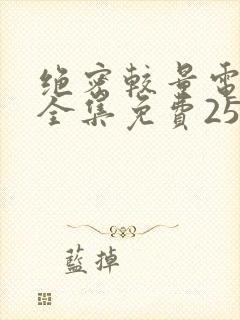 绝密較量電
全集免費25
藍掉